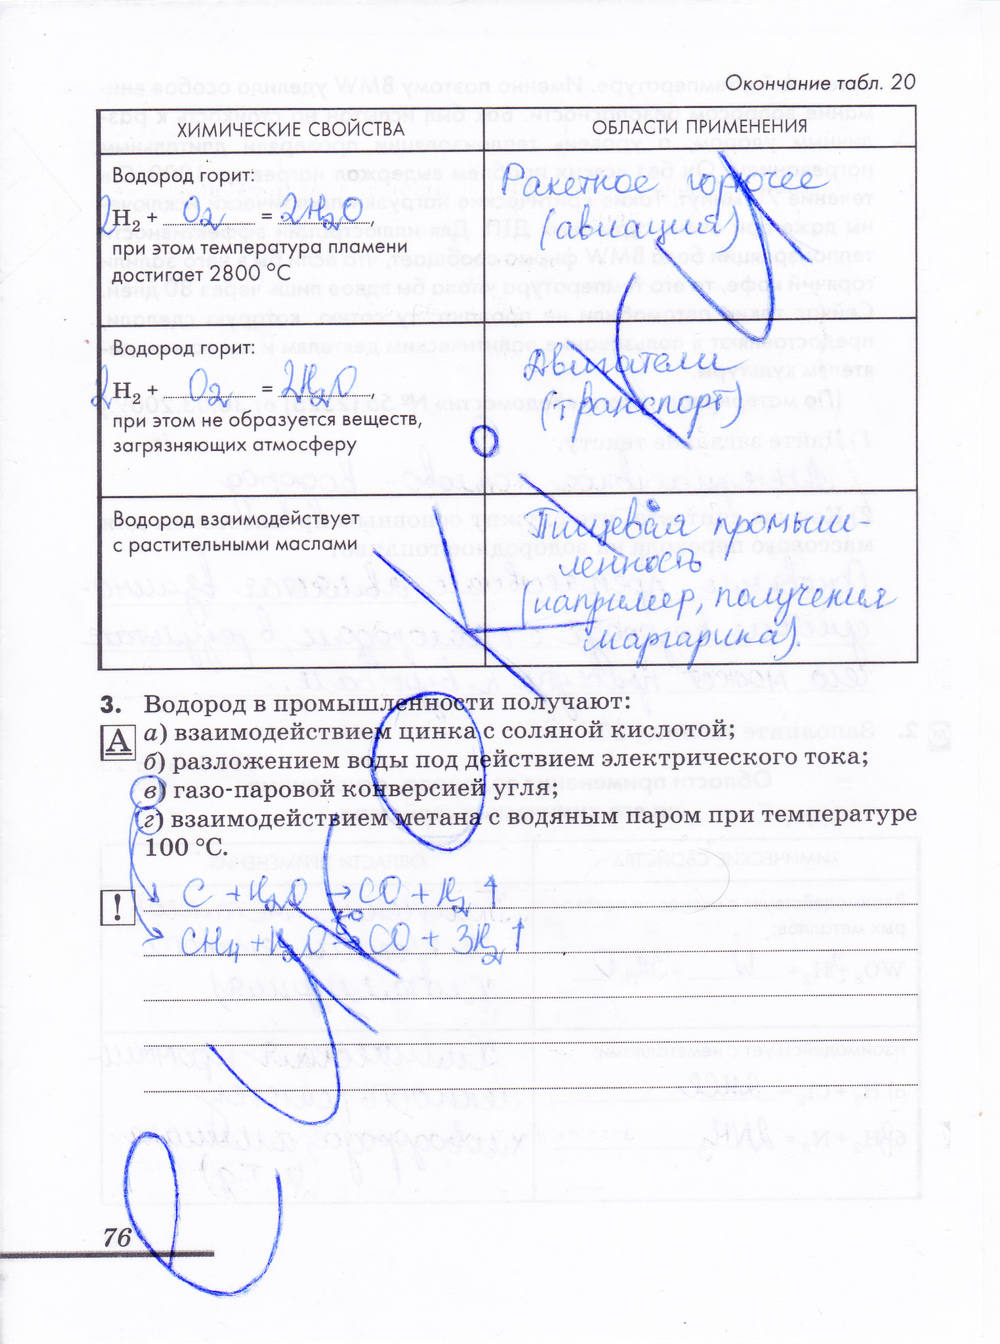 Окончание табл. 20
ХИМИЧЕСКИЕ СВОЙСТВА
ОБЛАСТИ ПРИМЕНЕНИЯ
Водород горит:
2H₂ + O₂ = 2H₂O,
при этом температура пламени
достигает 2800 °С
Ракетное горючее
(авиация)
Водород горит:
2H₂ + O₂ = 2H₂O,
при этом не образуется веществ,
загрязняющих атмосферу
Двигатели
(транспорт)
Водород взаимодействует
с растительными маслами
Пищевая промыш-
ленность
(например, получения
маргарина).
3. Водород в промышленности получают:
А
а) взаимодействием цинка с соляной кислотой;
б) разложением воды под действием электрического тока;
в) газо-паровой конверсией угля;
г) взаимодействием метана с водяным паром при температуре
100 °С.
!
C + H₂O → CO + H₂↑
CH₄ + H₂O → CO + 3H₂↑
76